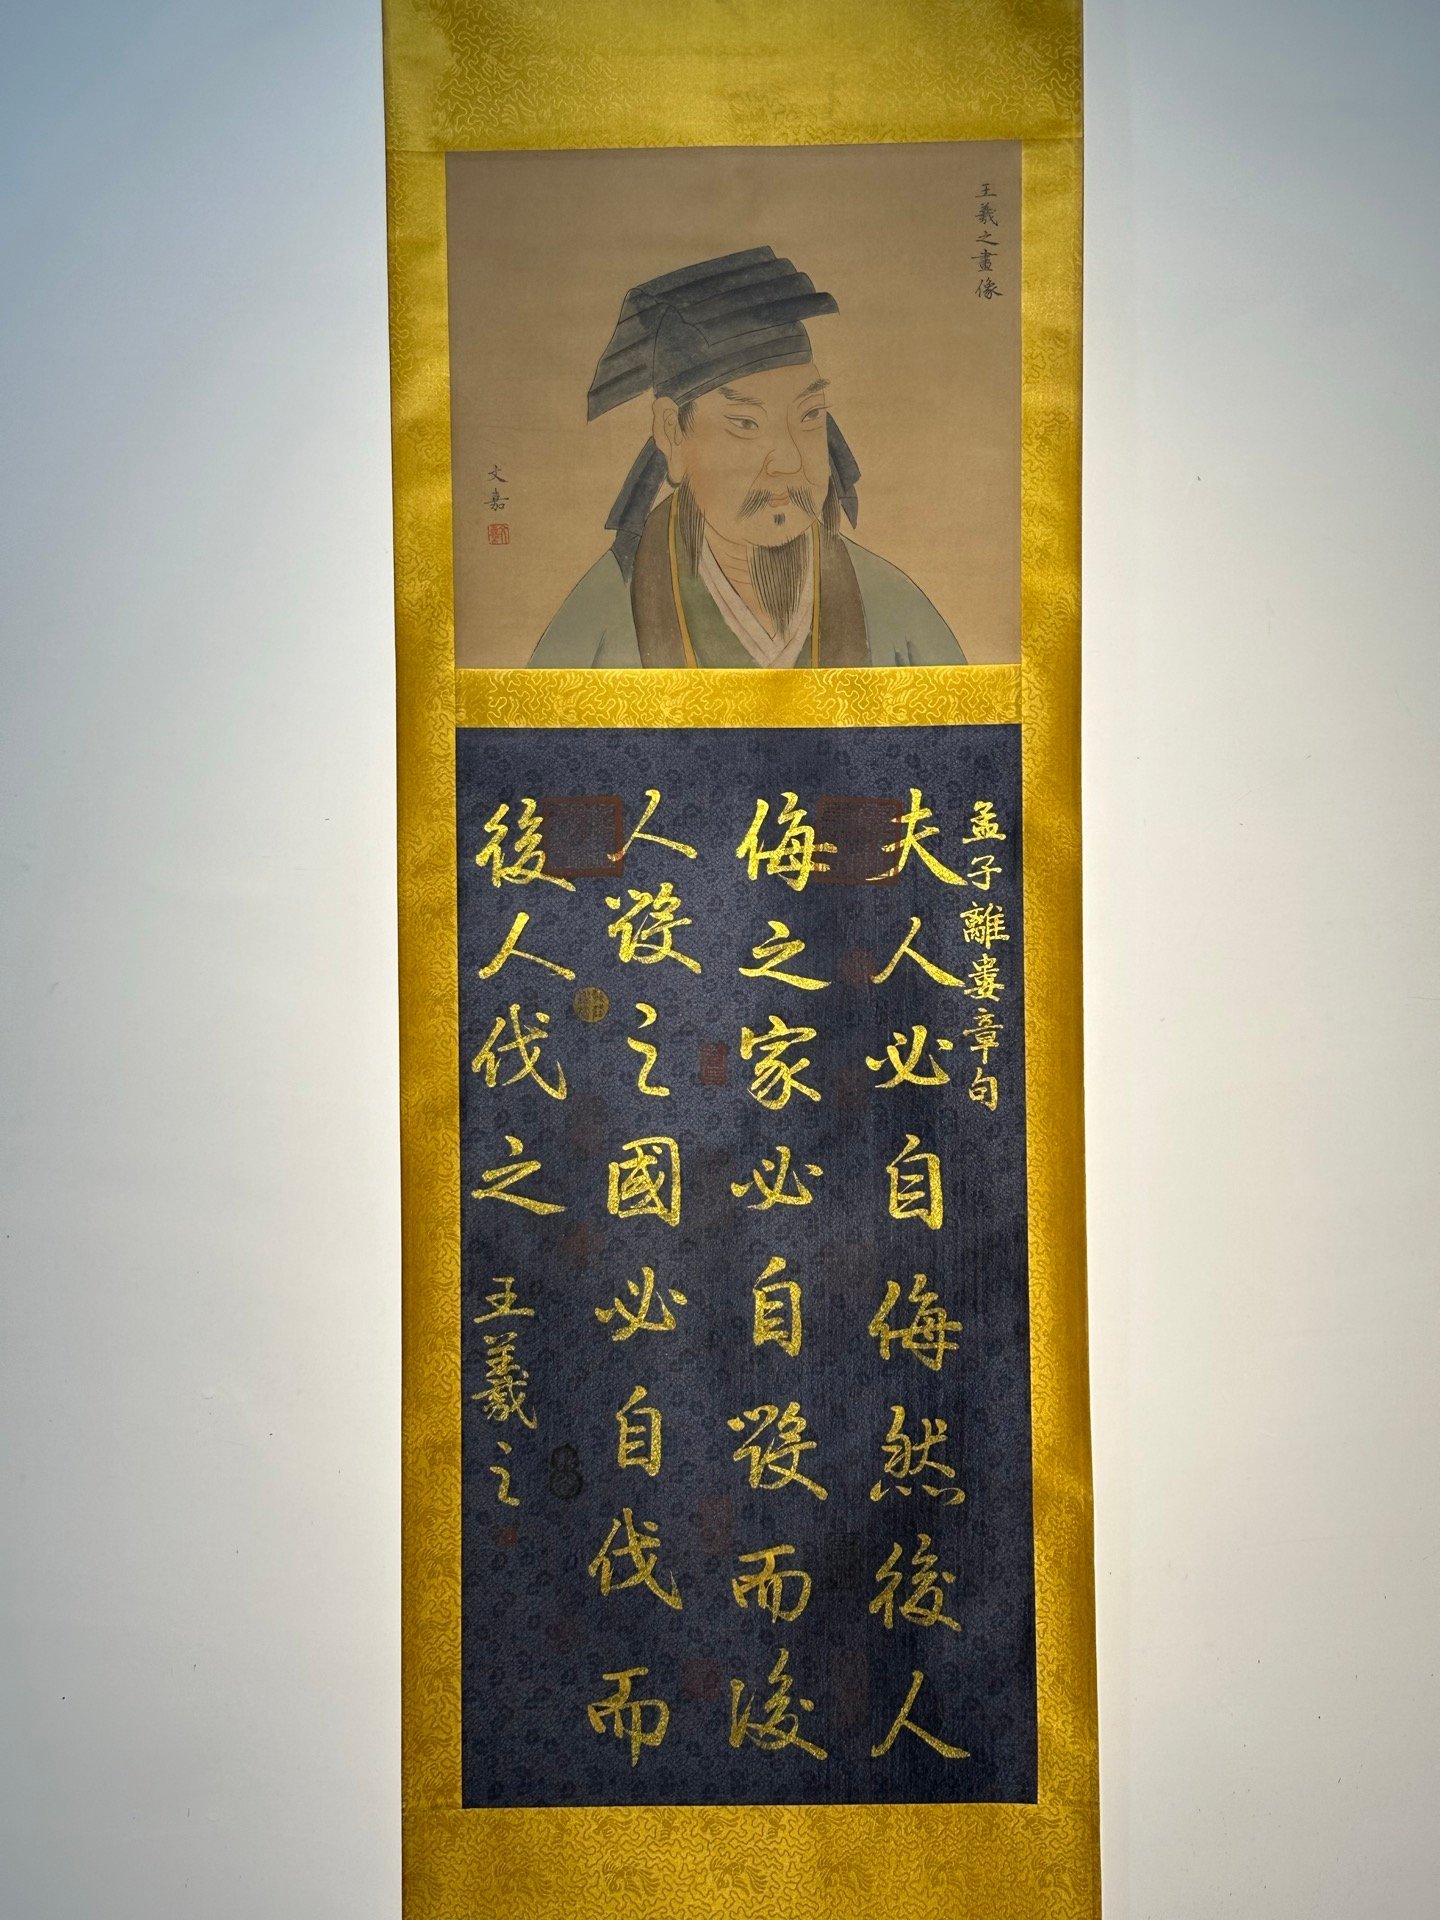 王羲之畫像
文嘉
孟子離婁章句
夫人必自侮然後人
侮之家必自毀而後
人毀之國必自伐而
後人伐之
王羲之